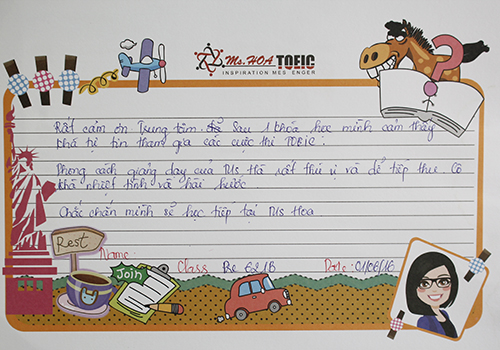 Ms.HOA TOEIC
INSPIRATION MESSENGER
Rất cảm ơn Trung tâm sau 1 khóa học mình cảm thấy
khá tự tin tham gia các cuộc thi TOEIC.
Phong cách giảng dạy của Ms Hà rất thú vị và dễ tiếp thu. Cô
khá nhiệt tình và hài hước.
Chắc chắn mình sẽ học tiếp tại Ms Hoa
Rest
Join
Name:
Class Pre 621B
Date: 01/06/16